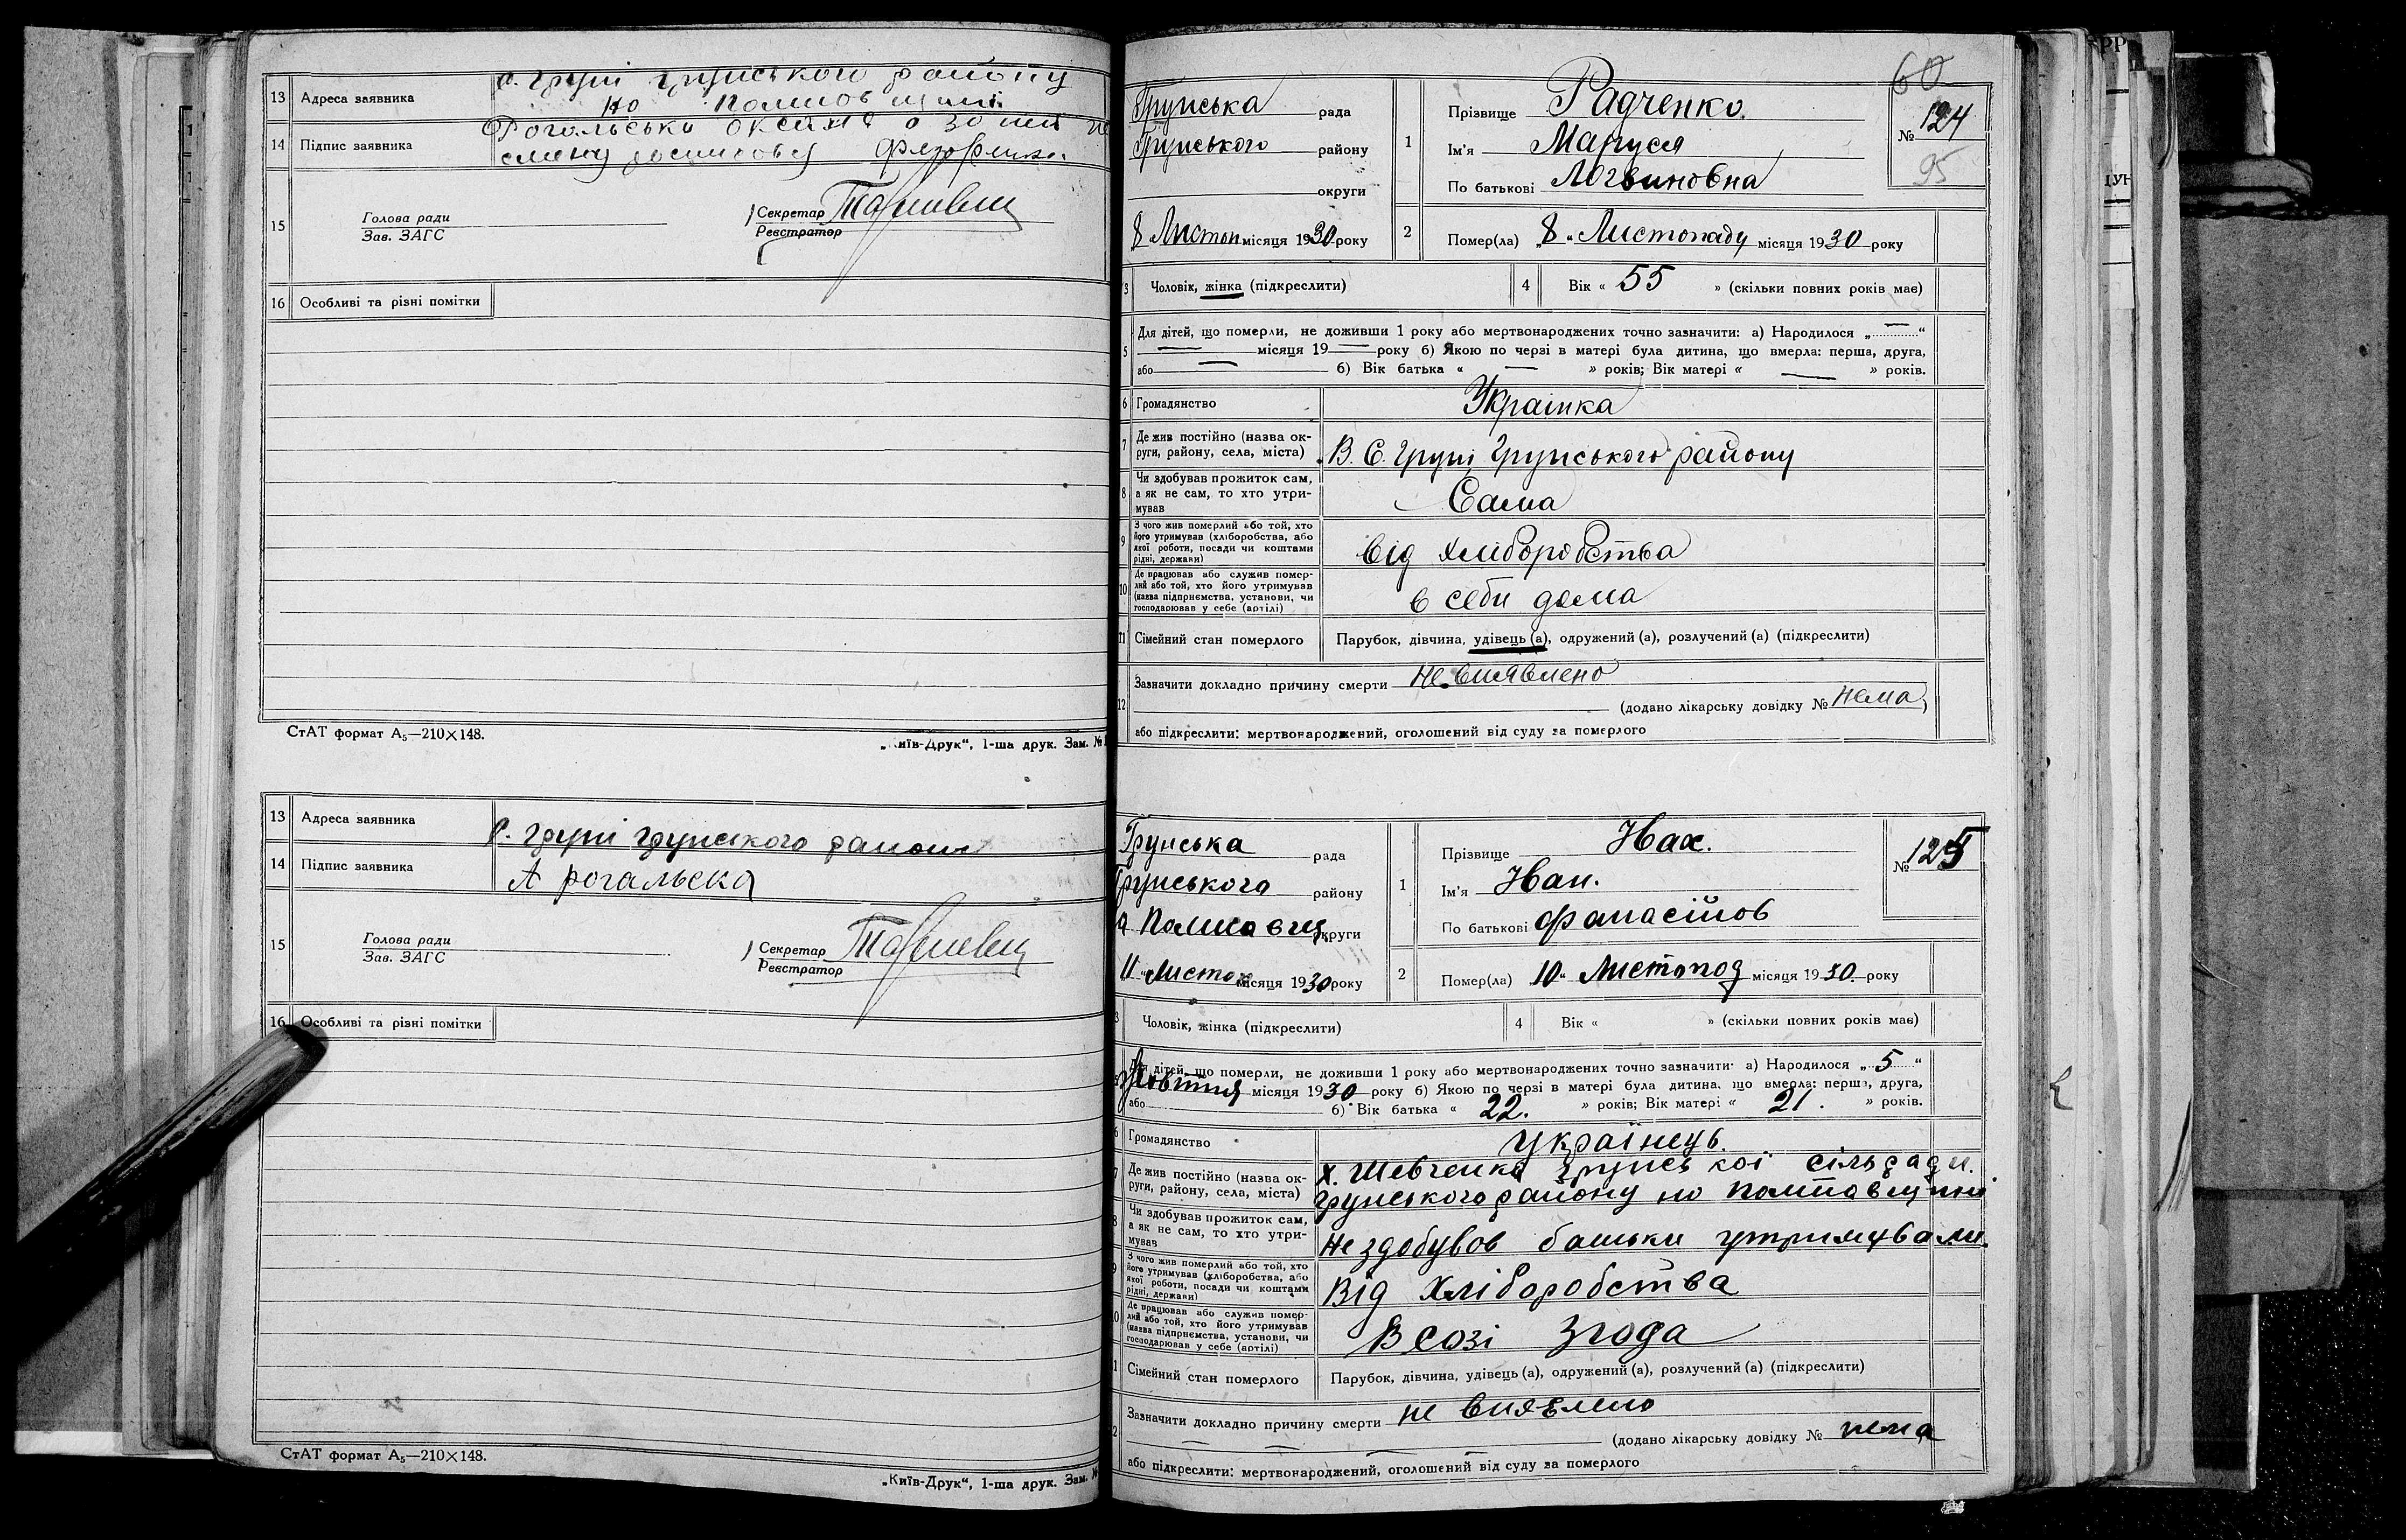 13 Адреса заявника
с. Груні Грунського району
по Полтавщині
14 Підпис заявника
Рогальська Оксана а за неї не
15 Голова ради
Зав. ЗАГС
Секретар
Реєстратор
16 Особливі та різні помітки
СтАТ формат А₅—210×148.
„Київ-Друк“, 1-ша друк. Зам. №
13 Адреса заявника
с. Груні Грунського района
14 Підпис заявника
А Рогальска
15 Голова ради
Зав. ЗАГС
Секретар
Реєстратор
16 Особливі та різні помітки
СтАТ формат А₅—210×148.
„Київ-Друк“, 1-ша друк. Зам. №
60
Грунська рада
Грунського району
округи
8 Листоп місяця 1930 року
1 Прізвище Радченко.
Ім'я Маруся
По батькові Логвиновна
№ 124
95
2 Помер(ла) „8“ Листопаду місяця 1930 року
3 Чоловік, жінка (підкреслити)
4 Вік « 55 » (скільки повних років має)
5 Для дітей, що померли, не доживши 1 року або мертвонароджених точно зазначити: а) Народилося „ — “
— місяця 19 — року б) Якою по черзі в матері була дитина, що вмерла: перша, друга,
або — б) Вік батька « — » років; Вік матері « — » років.
6 Громадянство Українка
7 Де жив постійно (назва округи, району, села, міста) В. С. Груні Грунського району
8 Чи здобував прожиток сам, а як не сам, то хто утримував Сама
9 З чого жив померлий або той, хто його утримував (хліборобства, або якої роботи, посади чи коштами рідні, держави) Від хліборобства
10 Де працював або служив померлий або той, хто його утримував (назва підприємства, установи, чи господарював у себе (артілі) в себи дома
11 Сімейний стан померлого Парубок, дівчина, удівець (а), одружений (а), розлучений (а) (підкреслити)
12 Зазначити докладно причину смерти не виявлено
(додано лікарську довідку № нема)
або підкреслити: мертвонароджений, оголошений від суду за померлого
Грунська рада
Грунського району
а Полтавщ округи
11 „Листоп місяця 1930 року
1 Прізвище Нах.
Ім'я Іван.
По батькові Фанасійов
№ 125
2 Помер(ла) „10“ Листопад місяця 1930. року
3 Чоловік, жінка (підкреслити)
4 Вік « » (скільки повних років має)
Для дітей, що померли, не доживши 1 року або мертвонароджених точно зазначити: а) Народилося „ 5 “
Жовтня місяця 1930 року б) Якою по черзі в матері була дитина, що вмерла: перша, друга,
або б) Вік батька « 22. » років; Вік матері « 21. » років.
6 Громадянство Українець.
7 Де жив постійно (назва округи, району, села, міста) х. Шевченка Грунської сільради.
Грунського району по Полтавщині
8 Чи здобував прожиток сам, а як не сам, то хто утримував Не здобував батьки утримували.
9 З чого жив померлий або той, хто його утримував (хліборобства, або якої роботи, посади чи коштами рідні, держави) Від хліборобства
10 Де працював або служив померлий або той, хто його утримував (назва підприємства, установи, чи господарював у себе (артілі) В созі Згода
11 Сімейний стан померлого Парубок, дівчина, удівець (а), одружений (а), розлучений (а) (підкреслити)
12 Зазначити докладно причину смерти не виявлено
(додано лікарську довідку № нема
або підкреслити: мертвонароджений, оголошений від суду за померлого